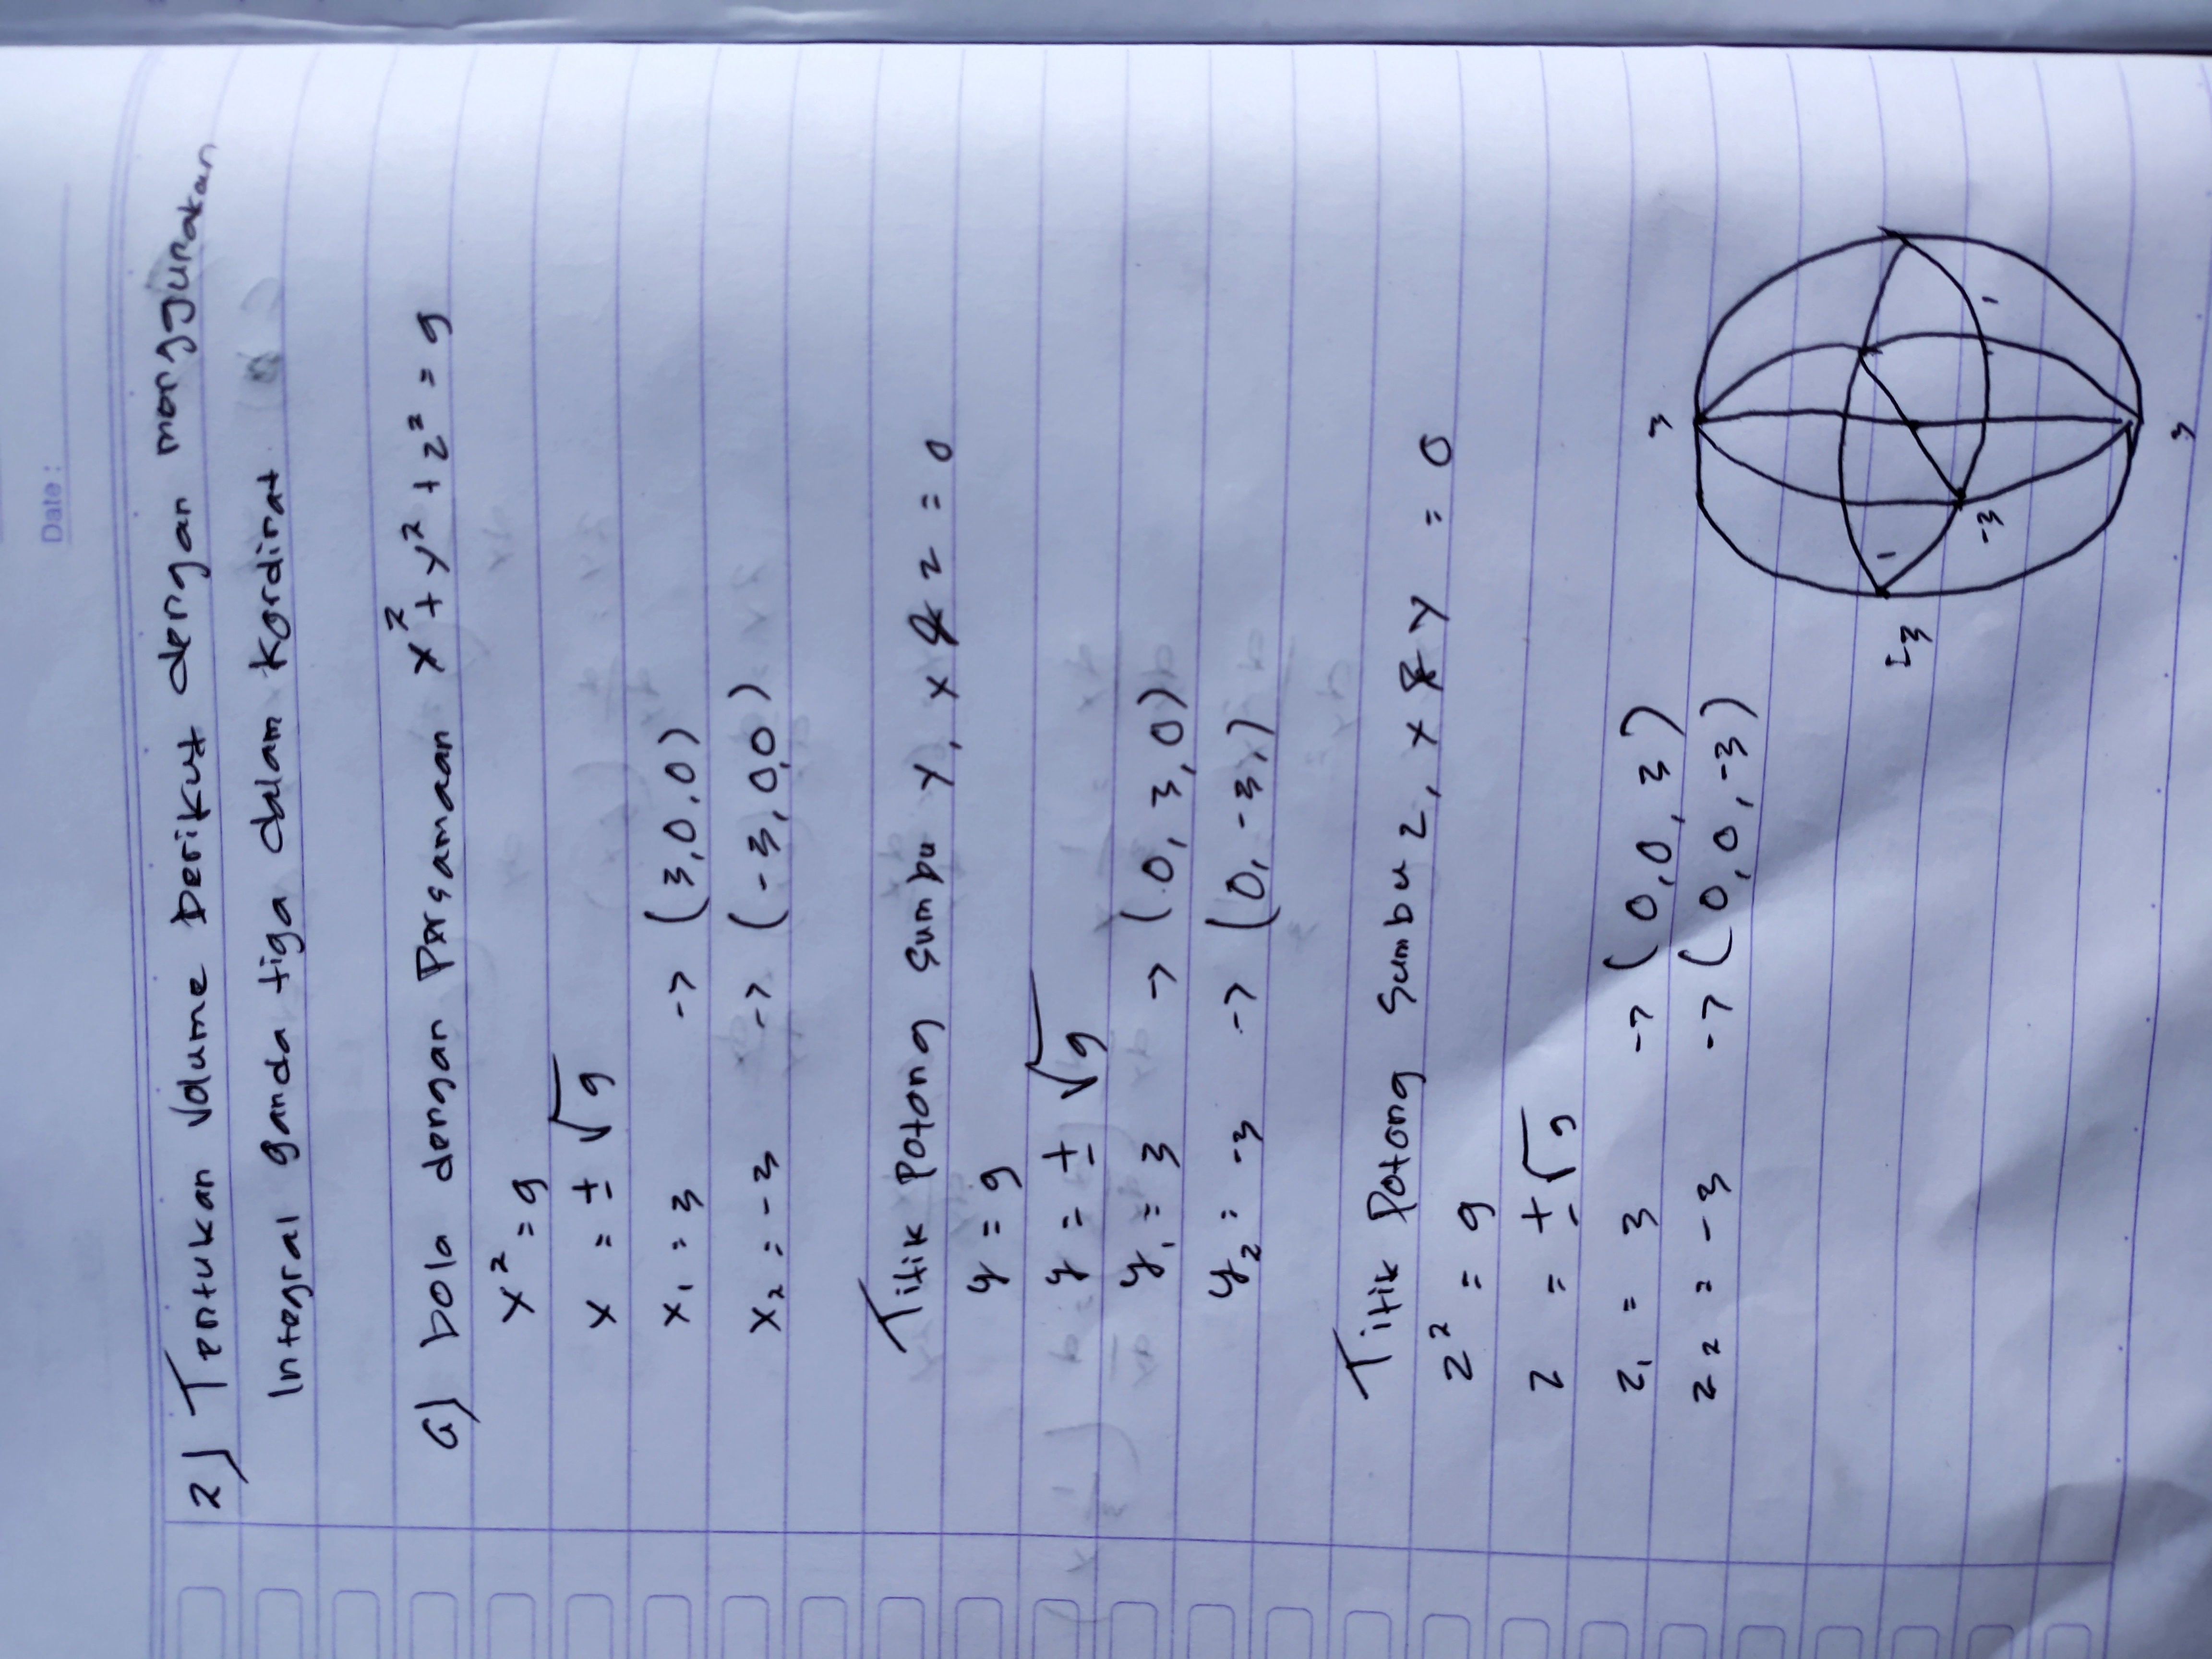 Date :
2) Tentukan Volume berikut dengan menggunakan
Integral ganda tiga dalam Kordinat
a) bola dengan Persamaan x² + y² + z² = 9
x² = 9
x = ± √9
x₁ = 3 -> (3,0,0)
x₂ = -3 -> (-3,0,0)
Titik Potong Sumbu y, x & z = 0
y = 9
y = ± √9
y₁ = 3 -> (0, 3, 0)
y₂ = -3 -> (0, -3, )
Titik Potong Sumbu z, x & y = 0
z² = 9
z = ± √9
z₁ = 3 -> (0,0,3)
z₂ = -3 -> (0,0,-3)
3
-3
-3
3